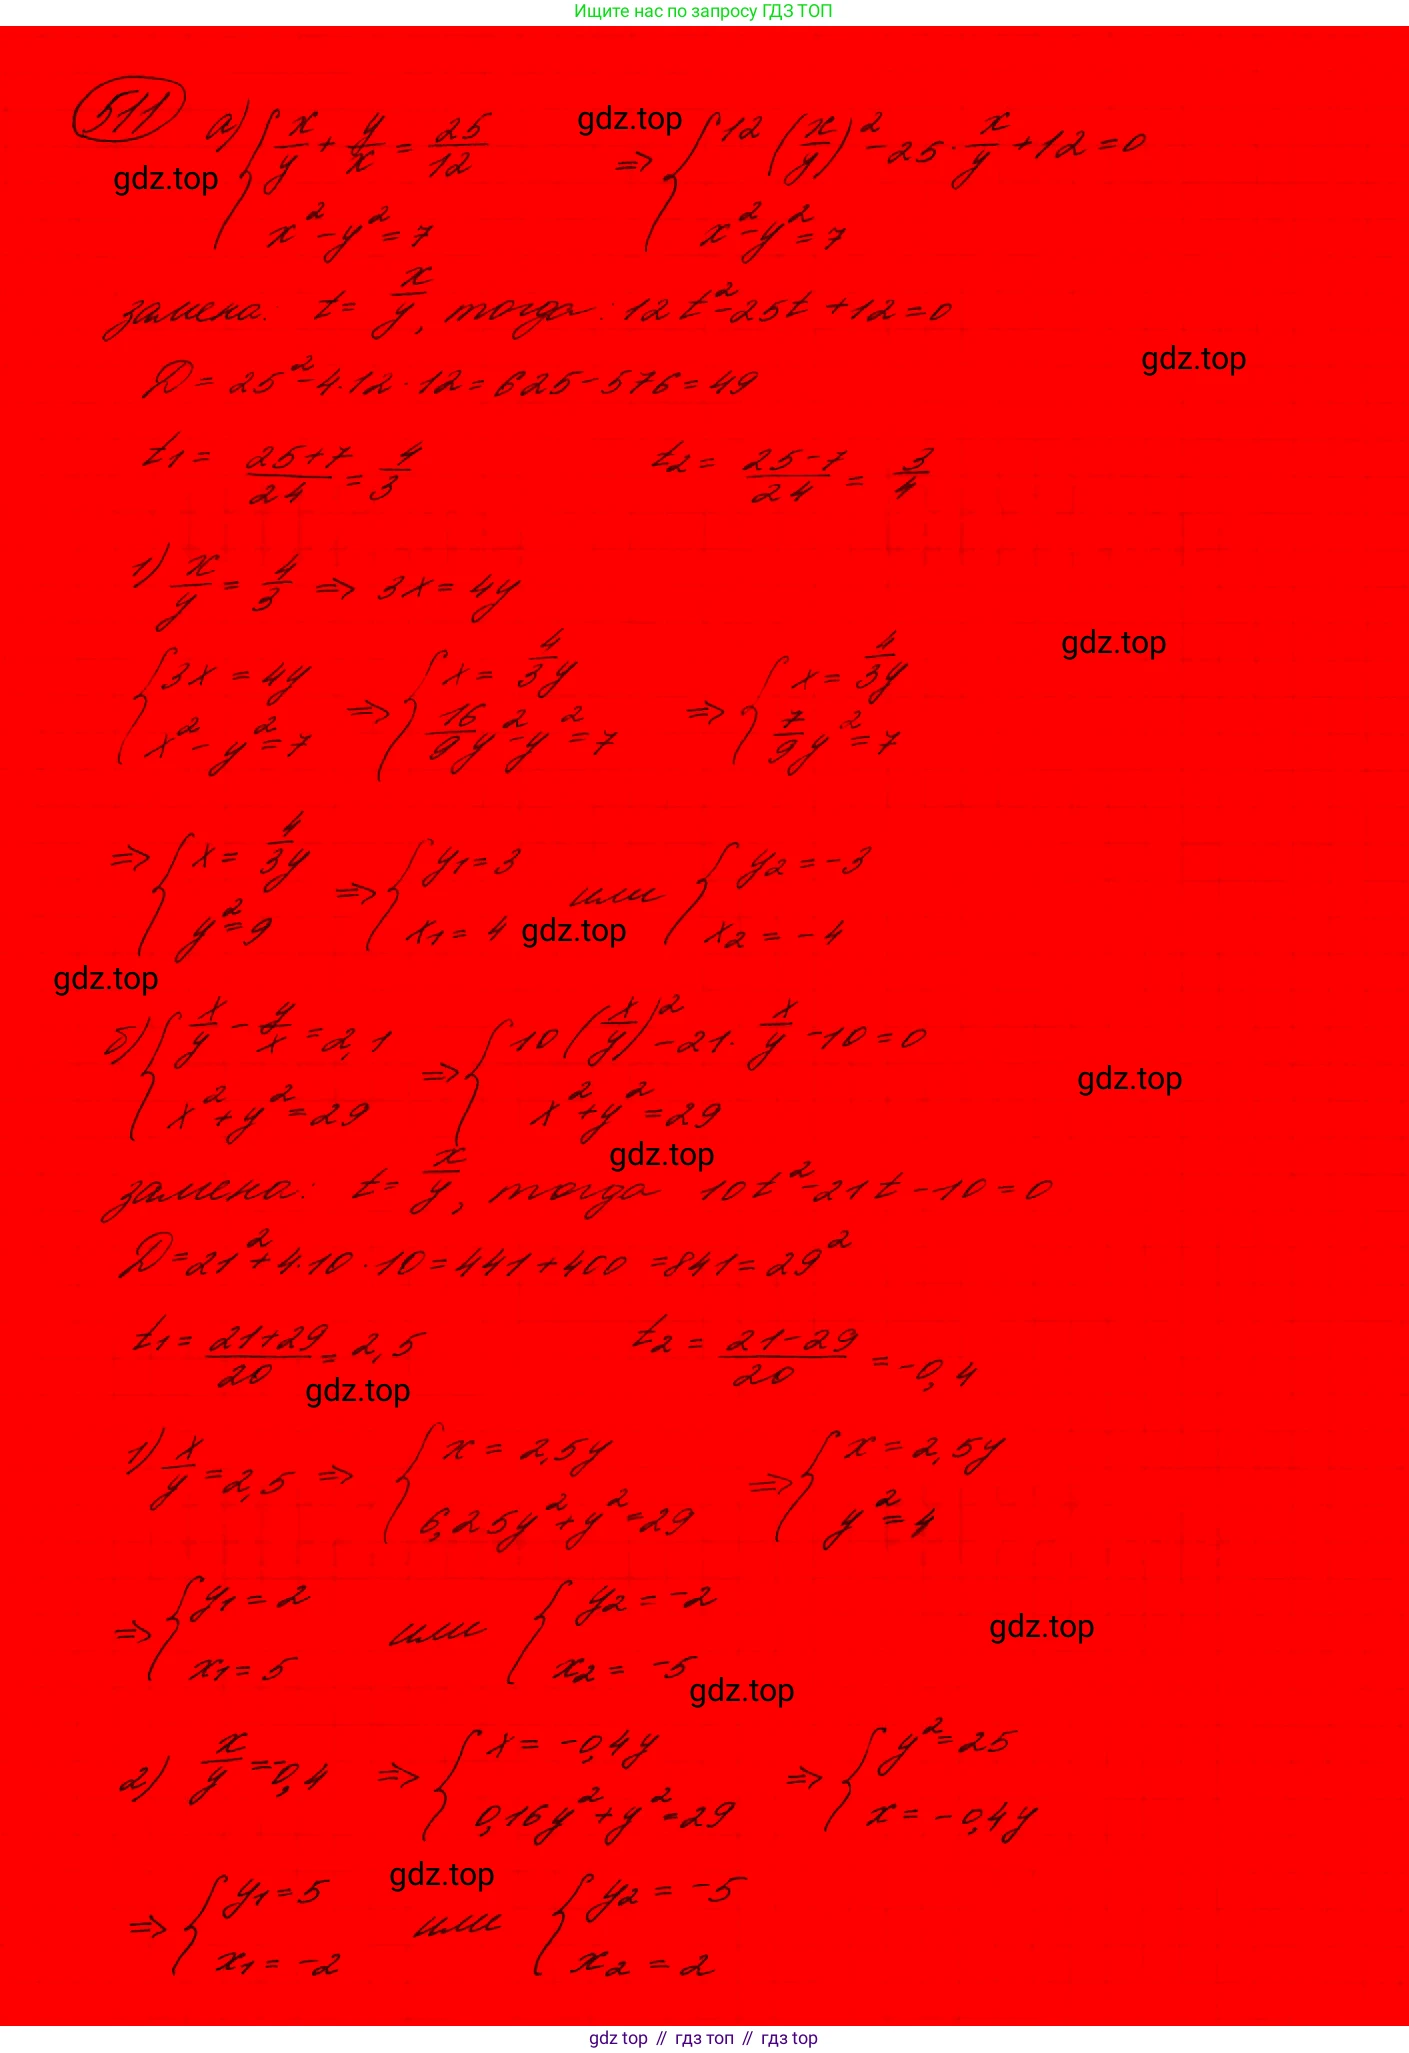 Ищите нас по запросу ГДЗ ТОП
511 а) { x/y + y/x = 25/12 ; x² - y² = 7 => { 12 (x/y)² - 25 · x/y + 12 = 0 ; x² - y² = 7
gdz.top
gdz.top
замена: t = x/y, тогда: 12t² - 25t + 12 = 0
D = 25² - 4 · 12 · 12 = 625 - 576 = 49
gdz.top
t₁ = (25+7)/24 = 4/3 t₂ = (25-7)/24 = 3/4
1) x/y = 4/3 => 3x = 4y
gdz.top
{ 3x = 4y ; x² - y² = 7 => { x = 4/3 y ; 16/9 y² - y² = 7 => { x = 4/3 y ; 7/9 y² = 7
=> { x = 4/3 y ; y² = 9 => { y₁ = 3 ; x₁ = 4 или { y₂ = -3 ; x₂ = -4
gdz.top
gdz.top
б) { x/y - y/x = 2,1 ; x² + y² = 29 => { 10 (x/y)² - 21 · x/y - 10 = 0 ; x² + y² = 29
gdz.top
gdz.top
замена: t = x/y, тогда 10t² - 21t - 10 = 0
D = 21² + 4 · 10 · 10 = 441 + 400 = 841 = 29²
t₁ = (21+29)/20 = 2,5 t₂ = (21-29)/20 = -0,4
gdz.top
1) x/y = 2,5 => { x = 2,5y ; 6,25y² + y² = 29 => { x = 2,5y ; y² = 4
=> { y₁ = 2 ; x₁ = 5 или { y₂ = -2 ; x₂ = -5
gdz.top
gdz.top
2) x/y = -0,4 => { x = -0,4y ; 0,16y² + y² = 29 => { y² = 25 ; x = -0,4y
gdz.top
=> { y₁ = 5 ; x₁ = -2 или { y₂ = -5 ; x₂ = 2
gdz top // гдз топ // гдз top